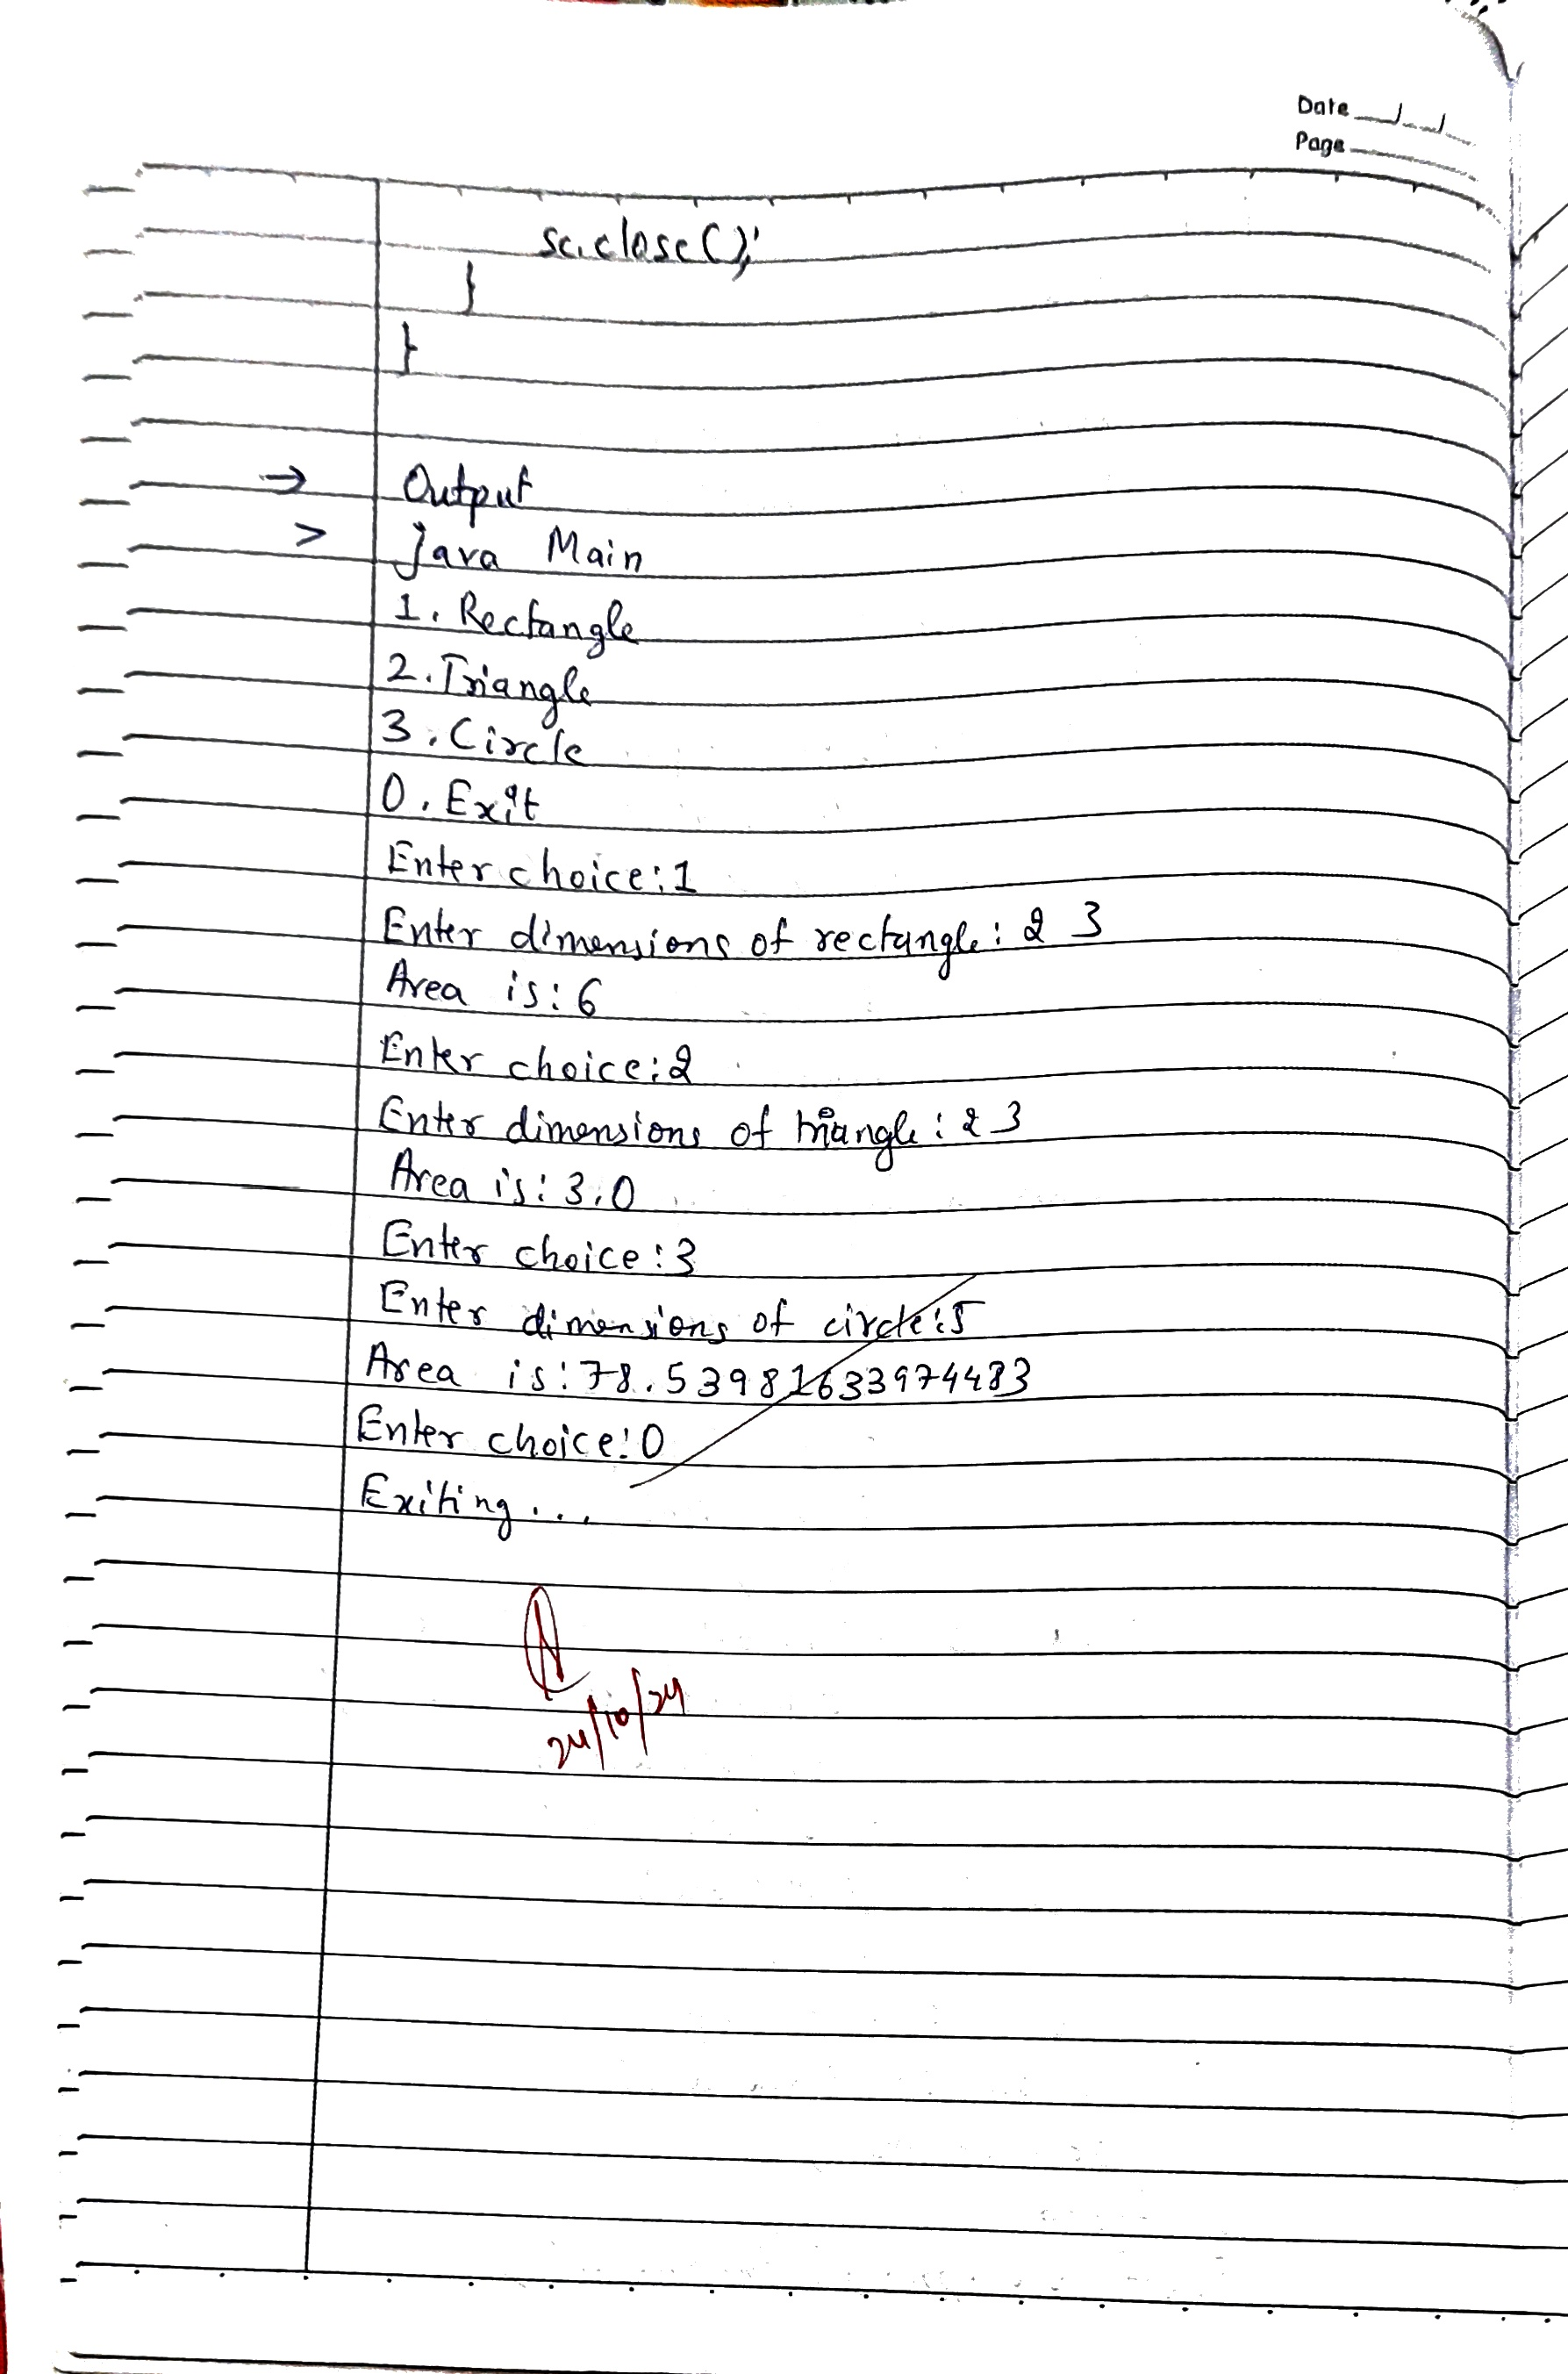 Date
Page
sc.close();
}
}
→ Output
> java Main
1. Rectangle
2. Triangle
3. Circle
0. Exit
Enter choice: 1
Enter dimensions of rectangle: 2 3
Area is: 6
Enter choice: 2
Enter dimensions of triangle: 2 3
Area is: 3.0
Enter choice: 3
Enter dimensions of circle: 5
Area is: 78.53981633974483
Enter choice: 0
Exiting...
24/10/24